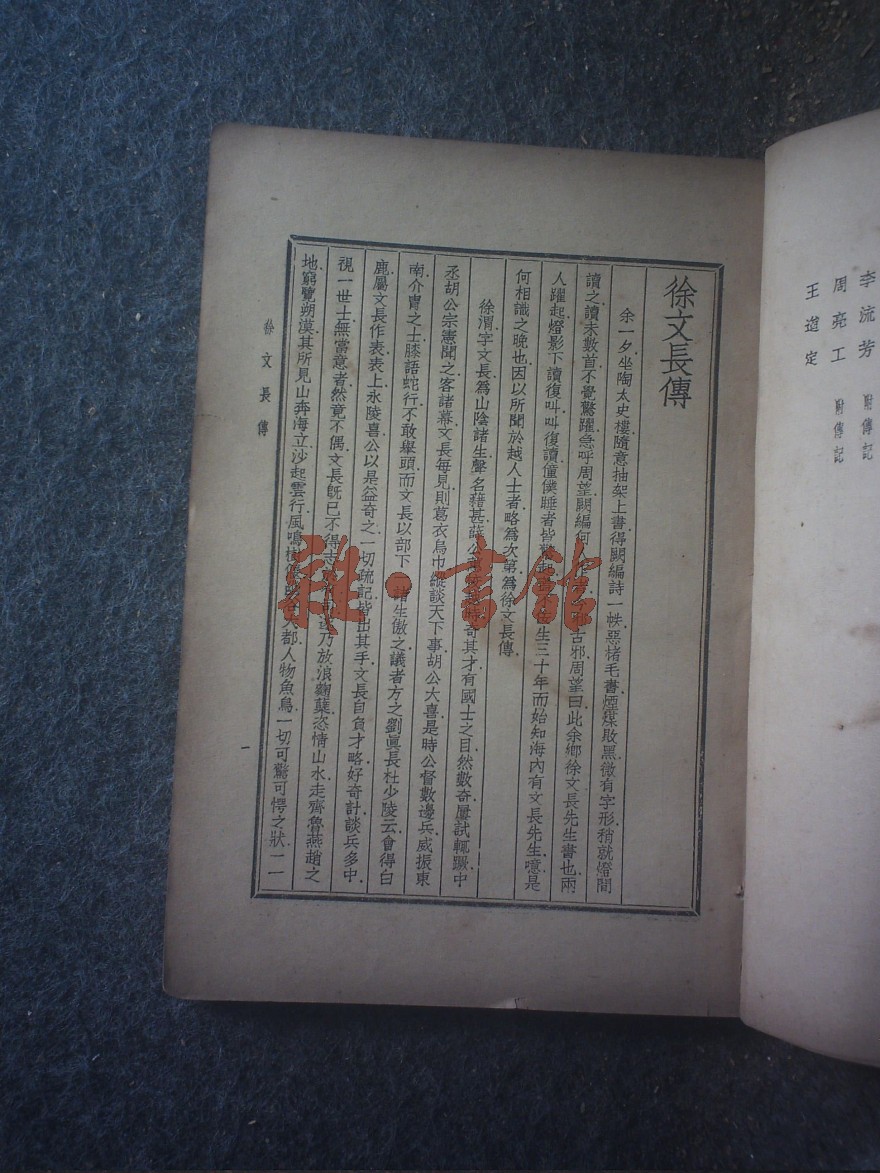 李流芳 附傳記
周亮工 附傳記
王道定
徐文長傳
余一夕坐陶太史樓隨意抽架上書得闕編詩一帙惡楮毛書煙煤敗黑微有字形稍就燈間
讀之讀未數首不覺驚躍急呼周望闕編何 古邪周望曰此余鄉徐文長先生書也兩
人躍起燈影下讀復叫叫復讀僮僕睡者皆驚起 生三十年而始知海內有文長先生噫是
何相識之晚也因以所聞於越人士者略為次第為徐文長傳
徐渭字文長為山陰諸生聲名藉甚薛公 奇其才有國士之目然數奇屢試輒蹶中
丞胡公宗憲聞之客諸幕文長每見則葛衣烏巾縱談天下事胡公大喜是時公督數邊兵威振東
南介冑之士膝語蛇行不敢舉頭而文長以部下一諸生傲之議者方之劉眞長杜少陵云會得白
鹿屬文長作表表上永陵喜公以是益奇之一切疏記皆出其手文長自負才略好奇計談兵多中
視一世士無當意者然竟不偶文長旣已不得志 乃放浪麴糵恣情山水走齊魯燕趙之
地窮覽朔漠其所見山奔海立沙起雲行風鳴樹 大都人物魚鳥一切可驚可愕之狀一一
徐文長傳
一
雜·書館